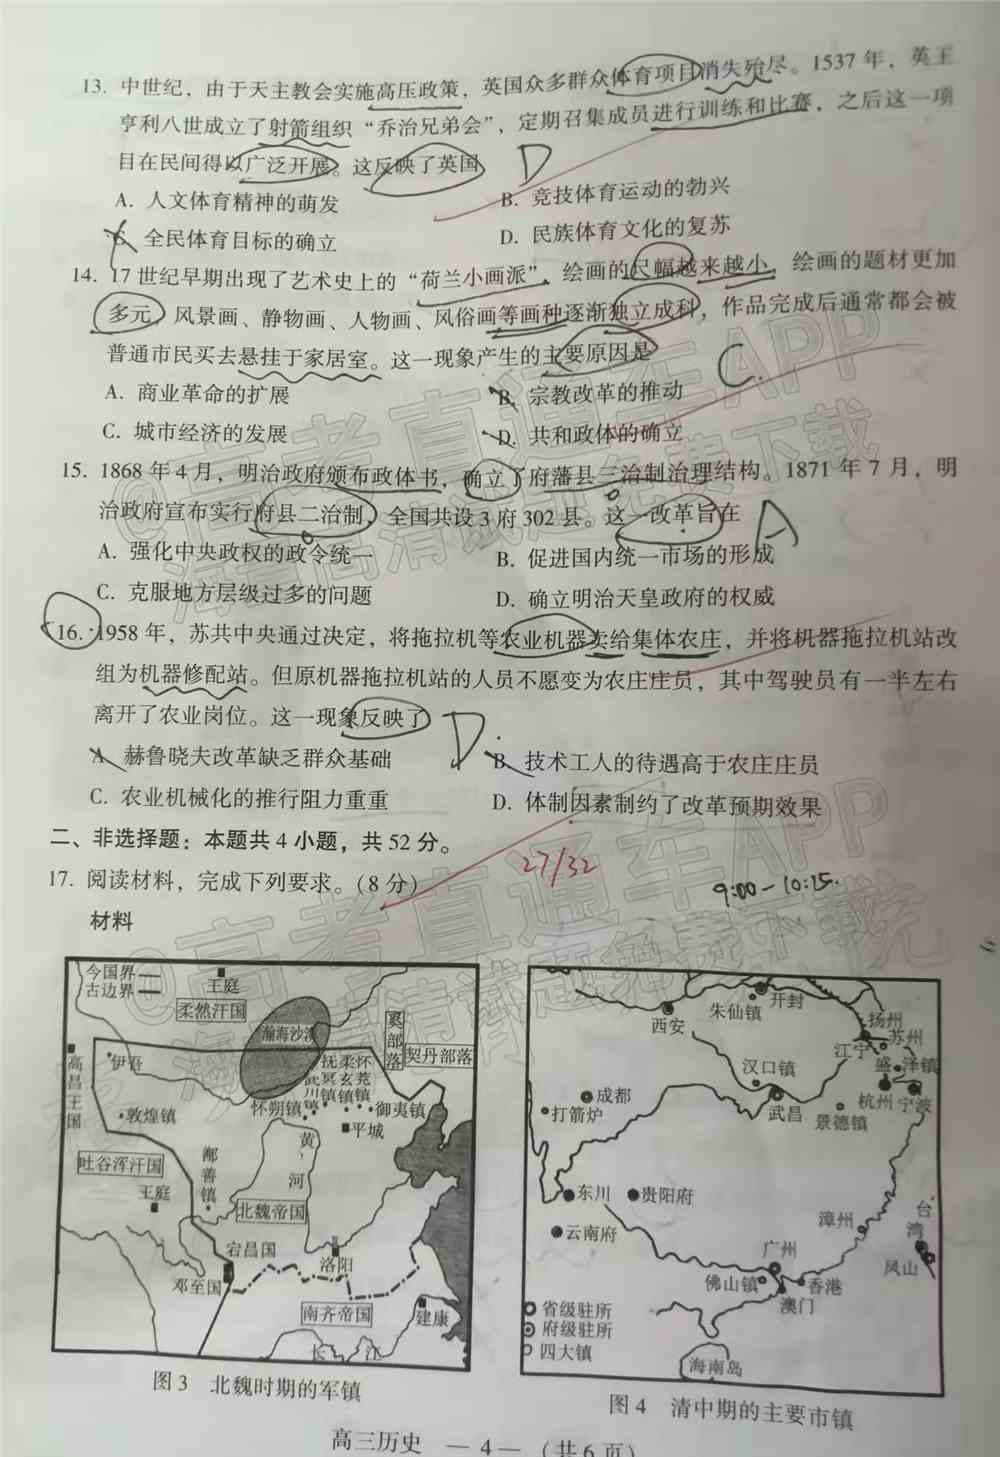 13. 中世纪，由于天主教会实施高压政策，英国众多群众体育项目消失殆尽。1537年，英王
亨利八世成立了射箭组织“乔治兄弟会”，定期召集成员进行训练和比赛，之后这一项
目在民间得以广泛开展。这反映了英国
D
A. 人文体育精神的萌发
B. 竞技体育运动的勃兴
C. 全民体育目标的确立
D. 民族体育文化的复苏
14. 17世纪早期出现了艺术史上的“荷兰小画派”，绘画的尺幅越来越小，绘画的题材更加
多元，风景画、静物画、人物画、风俗画等画种逐渐独立成科，作品完成后通常都会被
普通市民买去悬挂于家居室。这一现象产生的主要原因是
C.
A. 商业革命的扩展
B. 宗教改革的推动
C. 城市经济的发展
D. 共和政体的确立
15. 1868年4月，明治政府颁布政体书，确立了府藩县三治制治理结构。1871年7月，明
治政府宣布实行府县二治制，全国共设3府302县。这一改革旨在
A
A. 强化中央政权的政令统一
B. 促进国内统一市场的形成
C. 克服地方层级过多的问题
D. 确立明治天皇政府的权威
16. 1958年，苏共中央通过决定，将拖拉机等农业机器卖给集体农庄，并将机器拖拉机站改
组为机器修配站。但原机器拖拉机站的人员不愿变为农庄庄员，其中驾驶员有一半左右
离开了农业岗位。这一现象反映了
D.
A. 赫鲁晓夫改革缺乏群众基础
B. 技术工人的待遇高于农庄庄员
C. 农业机械化的推行阻力重重
D. 体制因素制约了改革预期效果
二、非选择题：本题共4小题，共52分。
27/32
17. 阅读材料，完成下列要求。（8分）
9:00-10:15.
材料
今国界
古边界
王庭
柔然汗国
瀚海沙漠
奚部落
契丹部落
高昌王国
伊吾
敦煌镇
怀朔镇
武川镇
抚冥镇
柔玄镇
怀荒镇
御夷镇
平城
吐谷浑汗国
王庭
鄯善镇
黄河
北魏帝国
宕昌国
邓至国
洛阳
南齐帝国
建康
长江
图3 北魏时期的军镇
西安
朱仙镇
开封
扬州
江宁
苏州
盛泽镇
杭州
宁波
汉口镇
武昌
景德镇
成都
打箭炉
东川
贵阳府
云南府
漳州
台湾
凤山
广州
佛山镇
香港
澳门
海南岛
省级驻所
府级驻所
四大镇
图4 清中期的主要市镇
高三历史 — 4 —（共6页）
@高考直通车APP
海量高清试题免费下载
@高考直通车APP